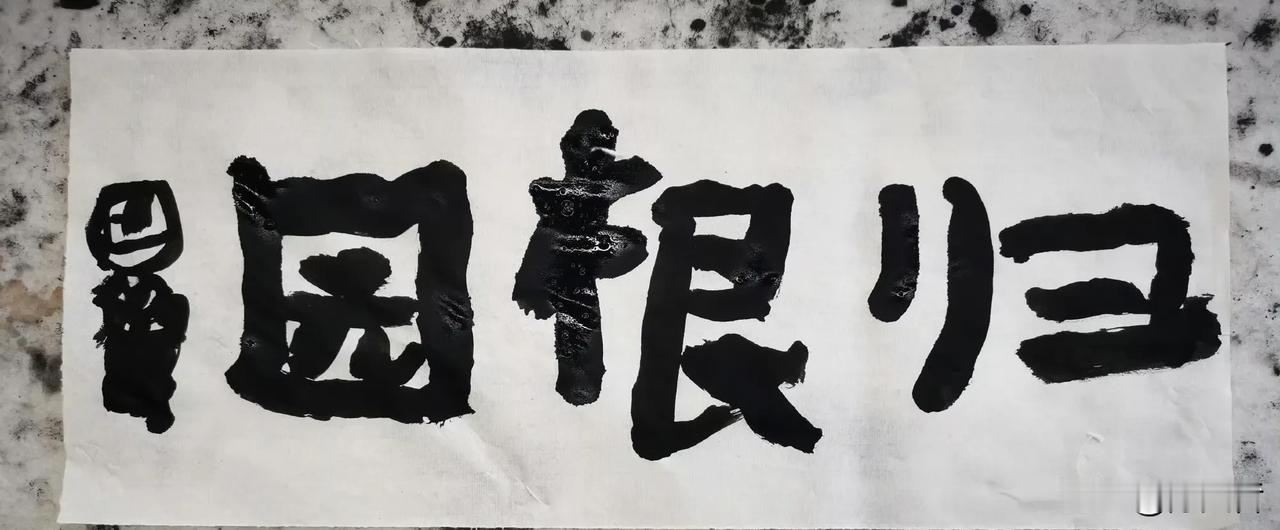 归根园